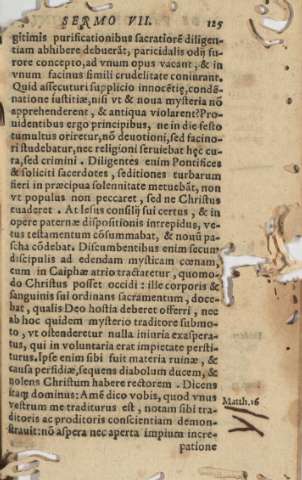 SERMO VII. 125
gitimis purificationibus sacratiorē diligen-
tiam abhibere debuerāt, paricidalis odij fu-
rore concepto, ad vnum opus vacant, & in
vnum facinus simili crudelitate coniurant.
Quid assecuturi supplicio innocētię, condē-
natione iustitiæ, nisi vt & noua mysteria nō
apprehenderent, & antiqua violarent? Pro-
uidentibus ergo principibus, ne in die festo
tumultus oriretur, nō deuotioni, sed facino-
ri studebatur, nec religioni seruiebat hęc cu-
ra, sed crimini. Diligentes enim Pontifices
& soliciti sacerdotes, seditiones turbarum
fieri in præcipua solennitate metuebāt, non
vt populus non peccaret, sed ne Christus
euaderet. At Iesus consilij sui certus, & in
opere paternæ dispositionis intrepidus, ve-
tus testamentum cōsummabat, & nouū pa-
scha cōdebat. Discumbentibus enim secum
discipulis ad edendam mysticam cœnam,
cum in Caiphæ atrio tractaretur, quomo-
do Christus posset occidi: ille corporis &
sanguinis sui ordinans sacramentum, doce-
bat, qualis Deo hostia deberet offerri, nec
ab hoc quidem mysterio traditore submo-
to, vt ostenderetur nulla iniuria exaspera-
tus, qui in voluntaria erat impietate persti-
turus. Ipse enim sibi fuit materia ruinæ, &
causa perfidiæ, sequens diabolum ducem, &
nolens Christum habere rectorem. Dicens
itaq; dominus: Amē dico vobis, quod vnus
vestrum me traditurus est, notam sibi tra-
ditoris ac proditoris conscientiam demon-
strauit: nō aspera nec aperta impium incre-
patione
Matth. 26